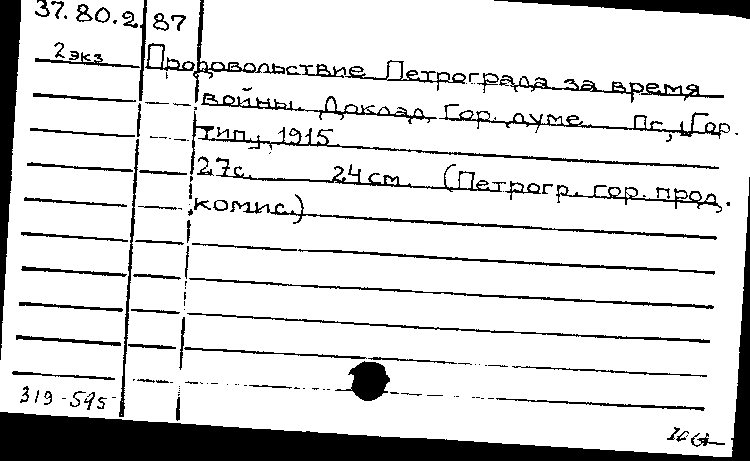 37.80.2.87
2экз Продовольствие Петрограда за время
войны. Доклад Гор. думе. Пг., Гор.
тип., 1915.
27с. 24см. (Петрогр. гор. прод.
комис.)
319-595